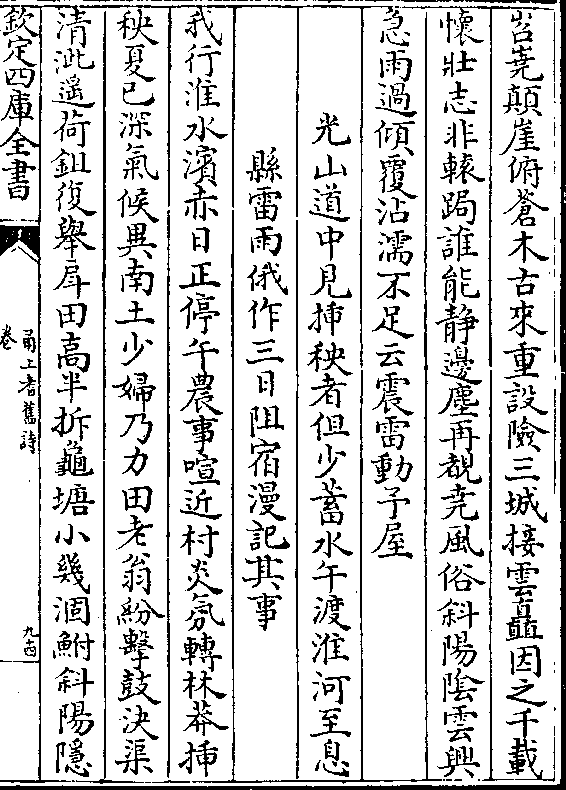 岧嶤顛崖俯蒼木古來重設險三城接雲矗因之千載
懷壯志非轅跼誰能静邊塵再覩堯風俗斜陽陰雲興
急雨過傾覆沾濡不足云震雷動予屋
光山道中見揷秧者但少蓄水午渡淮河至息
縣雷雨俄作三日阻宿漫記其事
我行淮水濱赤日正停午農事喧近村炎氛轉林莽揷
秧夏已深氣候異南土少婦乃力田老翁紛擊鼓決渠
清泚遥荷鉏復舉戽田高半拆龜塘小幾涸鮒斜陽隱
欽定四庫全書
甬上耆舊詩
卷
九十四